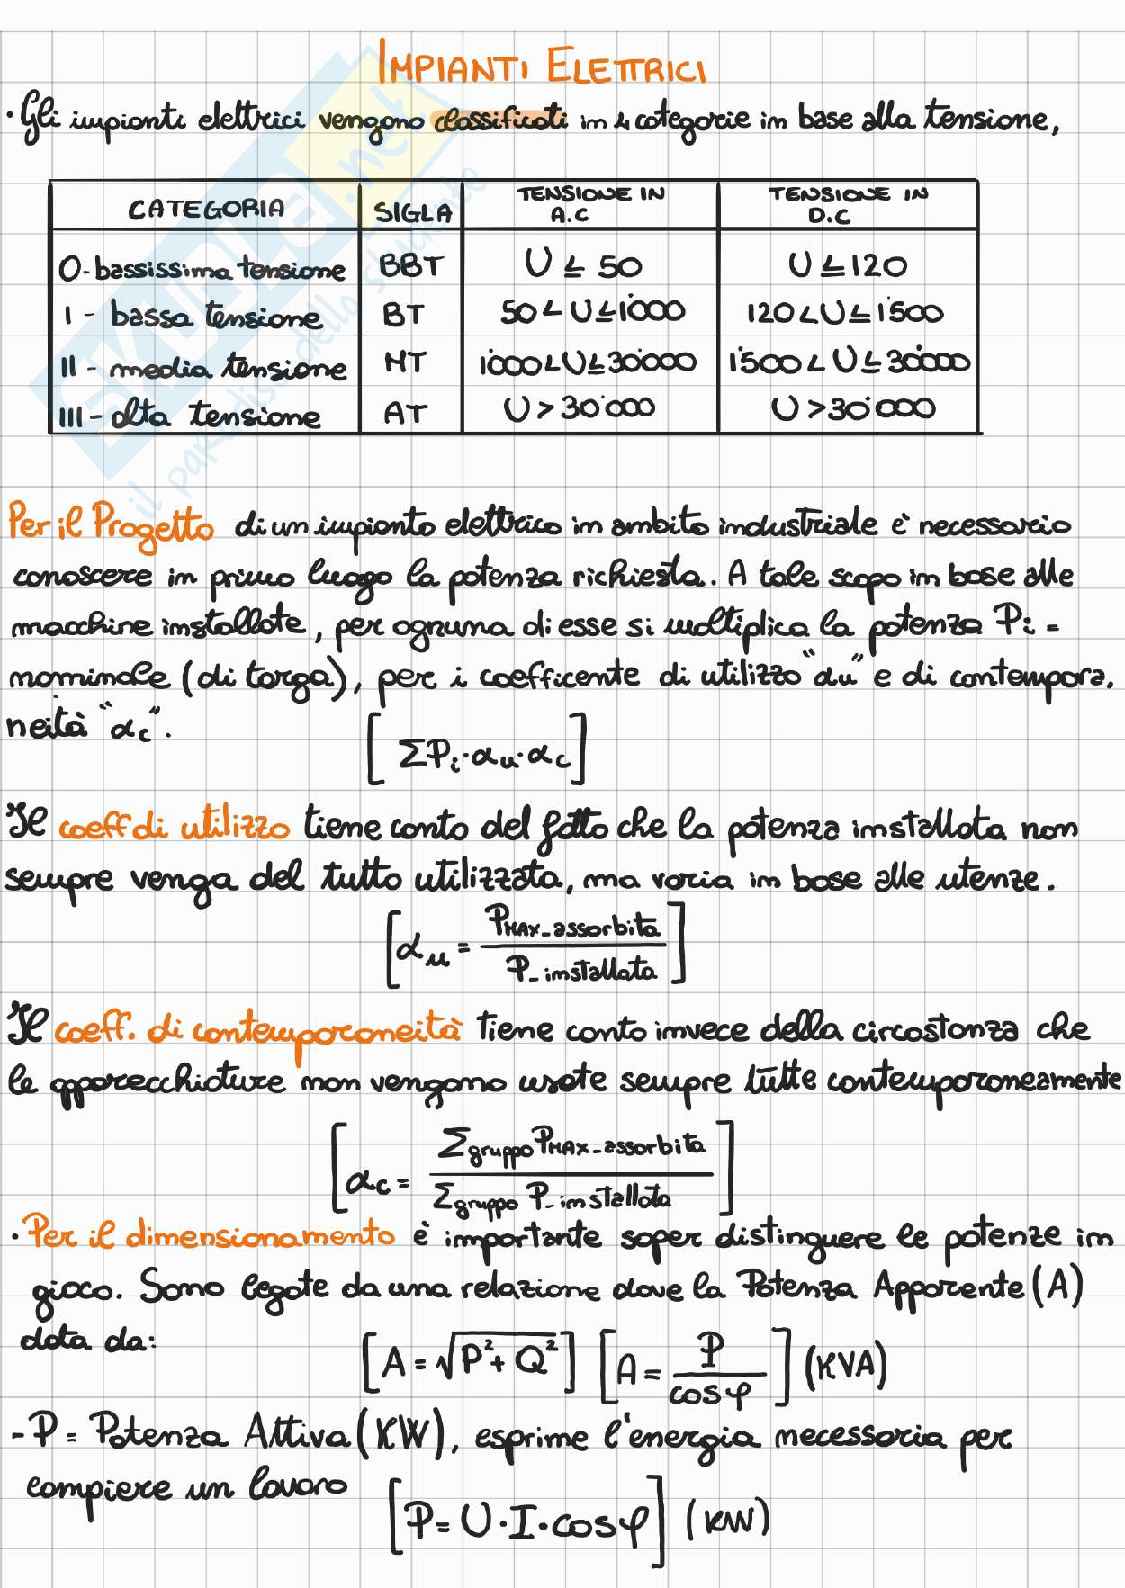 IMPIANTI ELETTRICI
• Gli impianti elettrici vengono classificati in 4 categorie in base alla tensione,
CATEGORIA SIGLA TENSIONE IN A.C TENSIONE IN D.C
0- bassissima tensione BBT U ≤ 50 U ≤ 120
I - bassa tensione BT 50 < U ≤ 1'000 120 < U ≤ 1'500
II - media tensione MT 1'000 < U ≤ 30'000 1'500 < U ≤ 30'000
III - alta tensione AT U > 30'000 U > 30'000
Per il Progetto di un impianto elettrico in ambito industriale è necessario
conoscere in primo luogo la potenza richiesta. A tale scopo in base alle
macchine installate, per ognuna di esse si moltiplica la potenza Pi =
nominale (di targa), per i coefficente di utilizzo "αu" e di contempora.
neità "αc".
[ΣPi·αu·αc]
Il coeff di utilizzo tiene conto del fatto che la potenza installata non
sempre venga del tutto utilizzata, ma varia in base alle utenze.
[αu = PMAX-assorbita / P-installata]
Il coeff. di contemporaneità tiene conto invece della circostanza che
le apparecchiature non vengono usate sempre tutte contemporaneamente
[αc = Σgruppo PMAX-assorbita / Σgruppo P-installata]
• Per il dimensionamento è importante saper distinguere le potenze in
gioco. Sono legate da una relazione dove la Potenza Apparente (A)
data da:
[A = √P²+Q²] [A = P / cosφ] (KVA)
- P = Potenza Attiva (KW), esprime l'energia necessaria per
compiere un lavoro
[P = U·I·cosφ] (KW)
SKUOLA.net
il paradiso dello studente